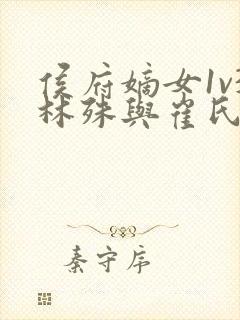 侯府嫡女1v
林殊與崔氏
秦守序